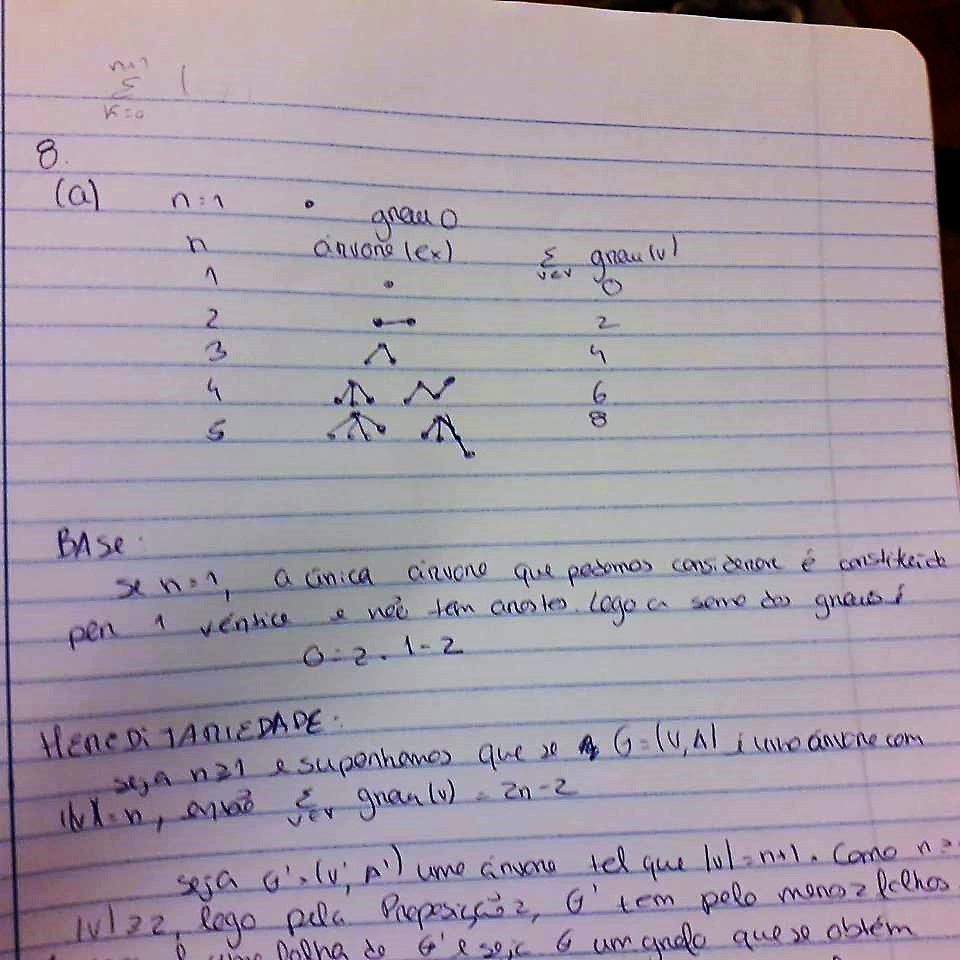 n-1
Σ 1
k=0
8.
(a) n=1 • grau 0
n árvore (ex) Σ v∈V grau(v)
1 0
2 2
3 4
4 6
5 8
BASE:
se n=1, a única árvore que podemos considerar é constituída
por 1 vértice e não tem arestas. Logo a soma dos graus é
0=2.1-2
HEREDITARIEDADE:
seja n≥1 e suponhamos que se G=(V,A) é uma árvore com
|V|=n, então Σ v∈V grau(v) = 2n-2
seja G'=(V',A') uma árvore tal que |V|=n+1. Como n≥
|V|≥2, logo pela Proposição 2, G' tem pelo menos 2 folhas
uma folha de G' e seja G um grafo que se obtém